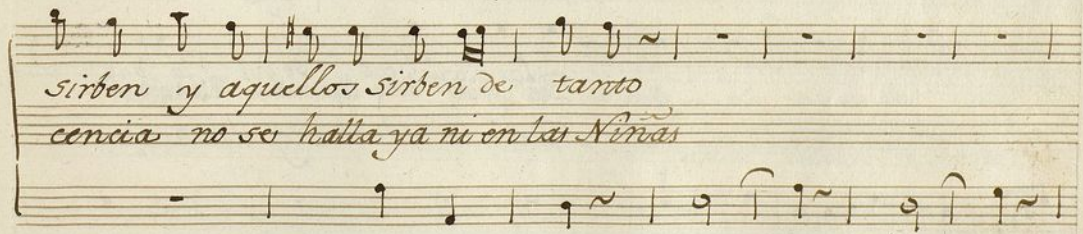 sirben y aquellos sirben de tanto
cencia no se halla ya ni en las Niñas